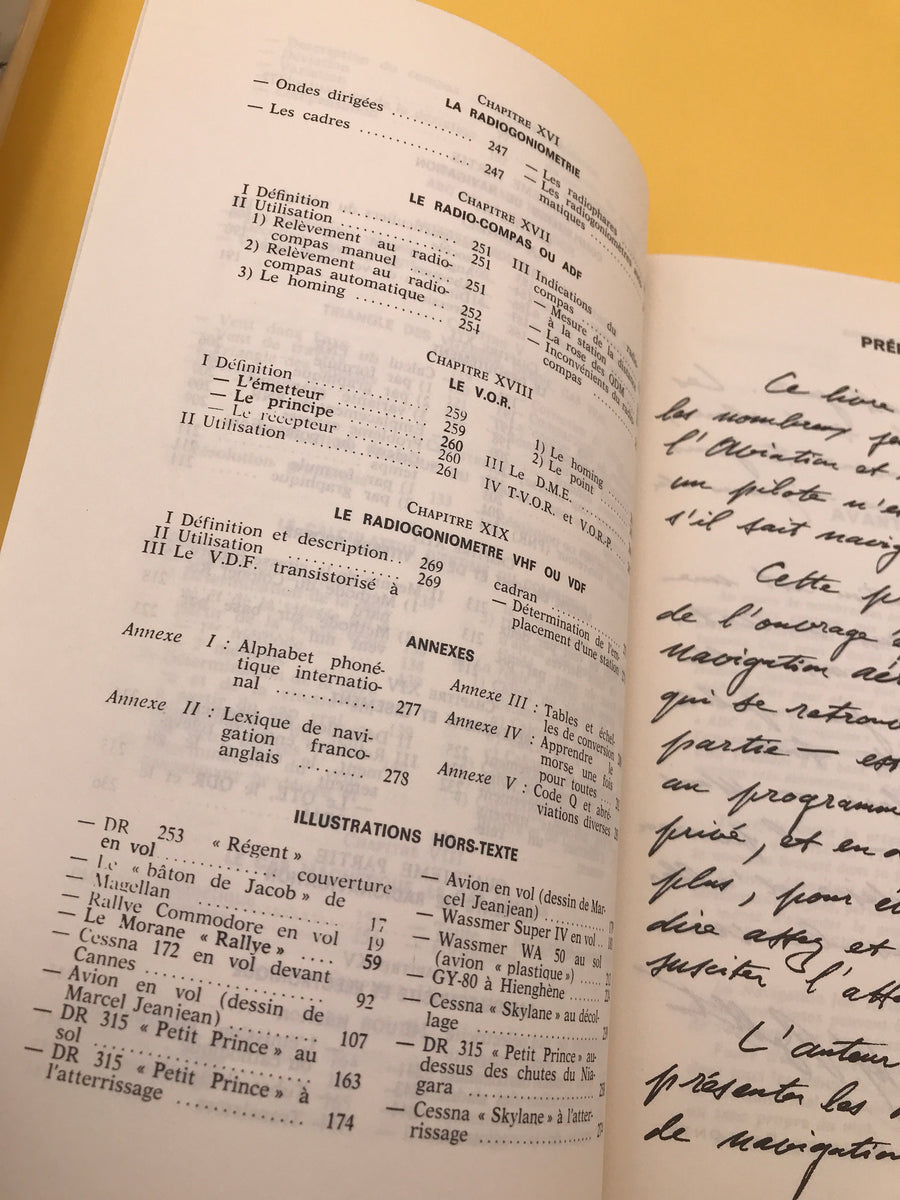 CHAPITRE XVI
LA RADIOGONIOMETRIE
— Ondes dirigées ............ 247
— Les cadres ................ 247
— Les radiophares
— Les radiogoniomètres
matiques
CHAPITRE XVII
LE RADIO-COMPAS OU ADF
I Définition ................ 251
II Utilisation ................ 251
1) Relèvement au radio-
compas manuel ...... 251
2) Relèvement au radio-
compas automatique .. 252
3) Le homing ............ 254
III Indications du
compas
— Mesure de la
à la station
— La rose des QDM
— Inconvénients du
compas
CHAPITRE XVIII
LE V.O.R.
I Définition ................ 259
— L'émetteur ............ 259
— Le principe ............ 260
— Le récepteur .......... 260
II Utilisation ................ 261
1) Le homing
2) Le point
III Le D.M.E.
IV T-V.O.R. et V.O.R.-P.
CHAPITRE XIX
LE RADIOGONIOMETRE VHF OU VDF
I Définition et description .. 269
II Utilisation .............. 269
III Le V.D.F. transistorisé à
cadran
— Détermination de l'em-
placement d'une station
ANNEXES
Annexe I : Alphabet phoné-
tique internatio-
nal .......... 277
Annexe II : Lexique de navi-
gation franco-
anglais ........ 278
Annexe III : Tables et échel-
les de conversion
Annexe IV : Apprendre le
morse une fois
pour toutes ..
Annexe V : Code Q et abré-
viations diverses
ILLUSTRATIONS HORS-TEXTE
— DR 253 « Régent »
en vol .............. couverture
— Le « bâton de Jacob » de
Magellan ................ 17
— Rallye Commodore en vol 19
— Le Morane « Rallye » .... 59
— Cessna 172 en vol devant
Cannes .................. 92
— Avion en vol (dessin de
Marcel Jeanjean) ........ 107
— DR 315 « Petit Prince » au
sol ...................... 163
— DR 315 « Petit Prince » à
l'atterrissage ............ 174
— Avion en vol (dessin de Mar-
cel Jeanjean) ............
— Wassmer Super IV en vol ..
— Wassmer WA 50 au sol
(avion « plastique ») ......
— GY-80 à Hienghène ......
— Cessna « Skylane » au décol-
lage ....................
— DR 315 « Petit Prince » au-
dessus des chutes du Nia-
gara ....................
— Cessna « Skylane » à l'atter-
rissage ..................
Ce livre
les nombreux
l'Aviation et
un pilote
s'il sait
Cette
de l'ouvrage
Navigation
qui se
partie —
au programm
privé, et en
plus, pour
dire assez et
susciter
L'auteur
présenter les
de navigation